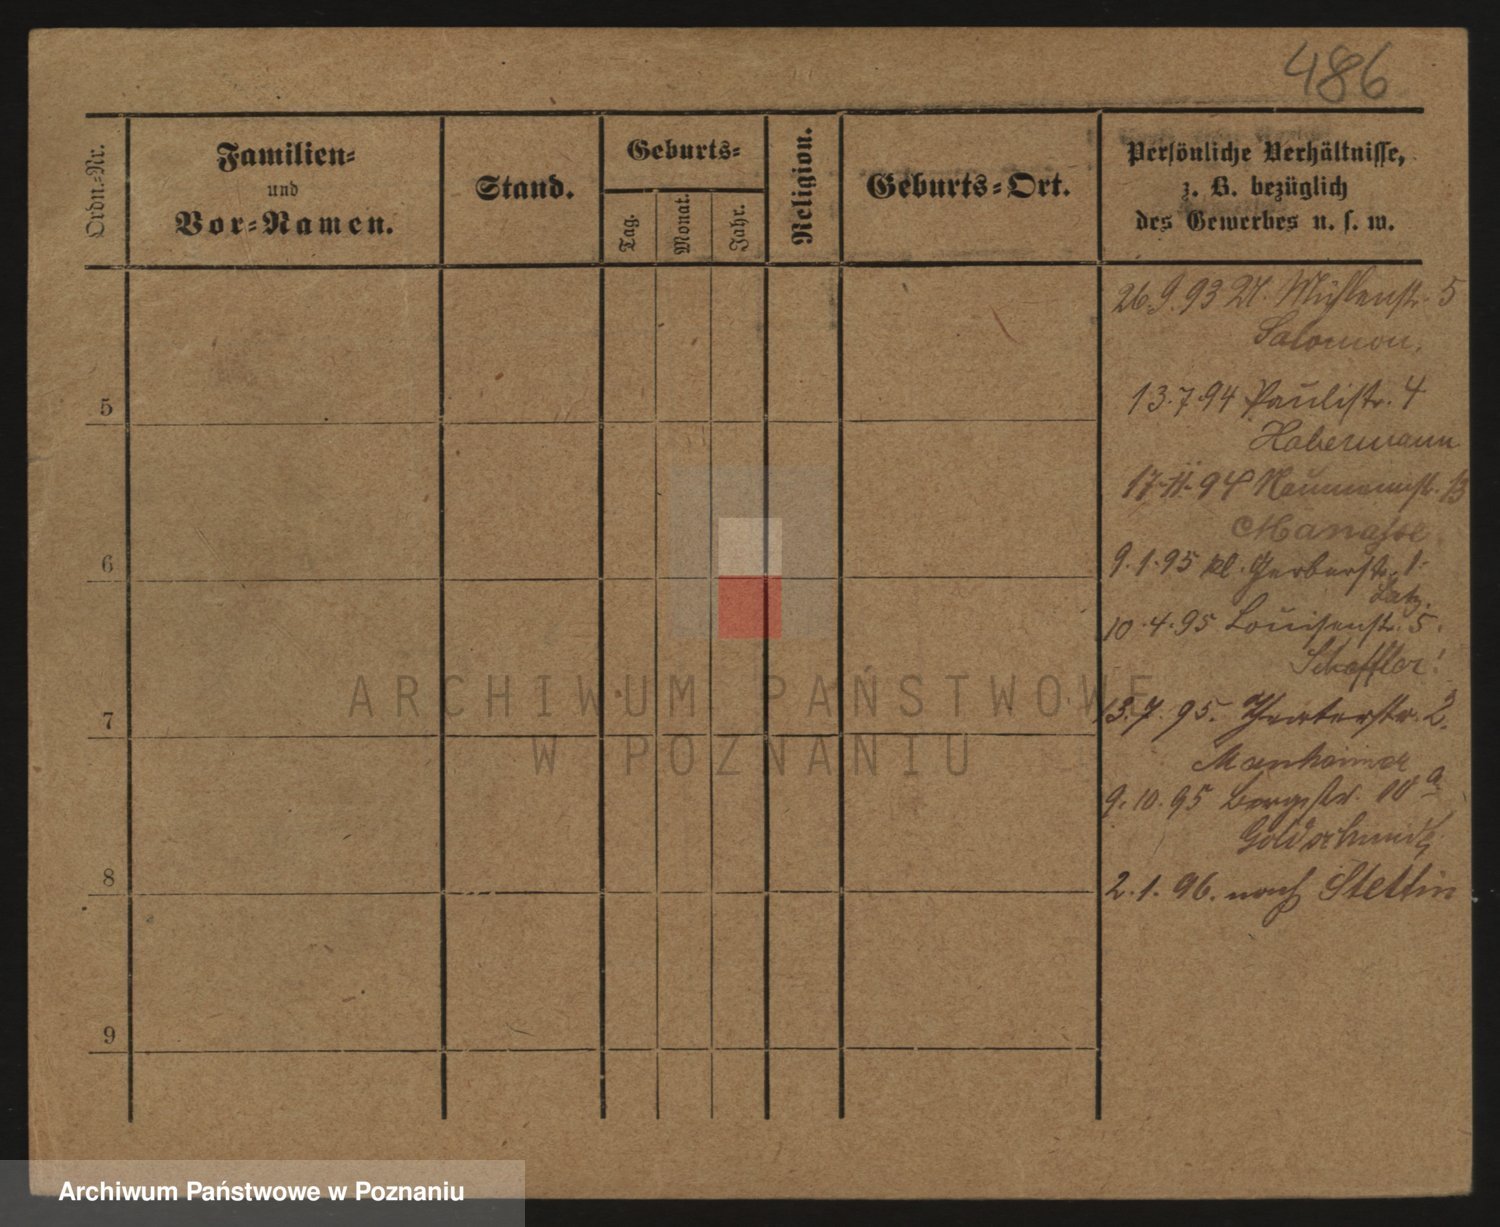 486
Ordn.-Nr.
Familien-
und
Vor-Namen.
Stand.
Geburts-
Tag.
Monat.
Jahr.
Religion.
Geburts-Ort.
Persönliche Verhältnisse,
z. B. bezüglich
des Gewerbes u. s. w.
26.9.93 Mühlenstr. 5
Salomon.
5
13.7.94 Paulistr. 4
Habermann
17.11.94 Naumannstr. 13
Manasse
6
9.1.95 kl. Gerberstr. 1.
10.4.95 Louisenstr. 5.
Scheffler
7
13.7.95. Theaterstr. 2.
Manheimer
9.10.95 Bergstr. 10 a
Goldschmidt
8
2.1.96. nach Stettin
9
ARCHIWUM PAŃSTWOWE
W POZNANIU
Archiwum Państwowe w Poznaniu